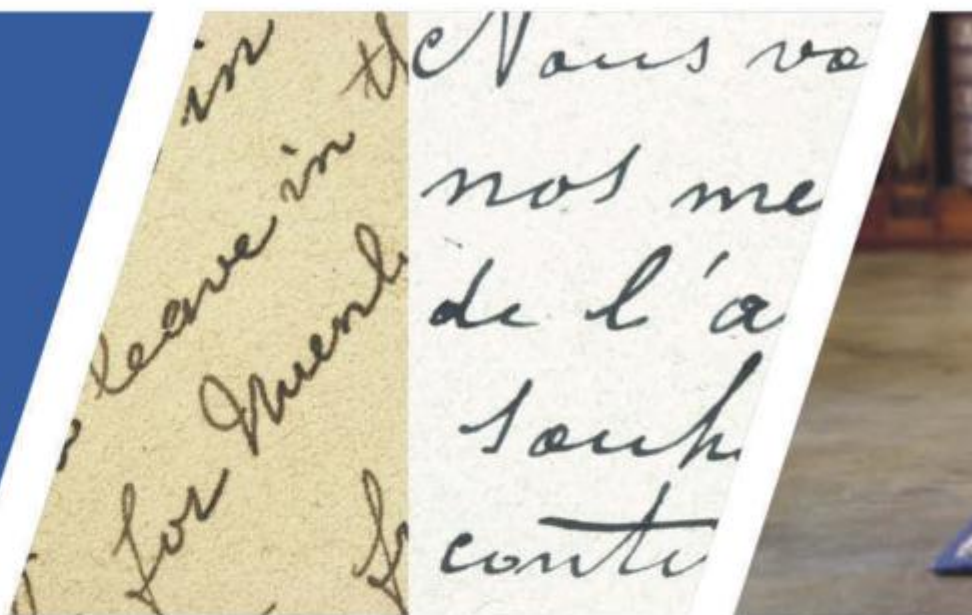 in
leave in th
for Muenb
Nous vo
nos me
de l'a
souh
conti